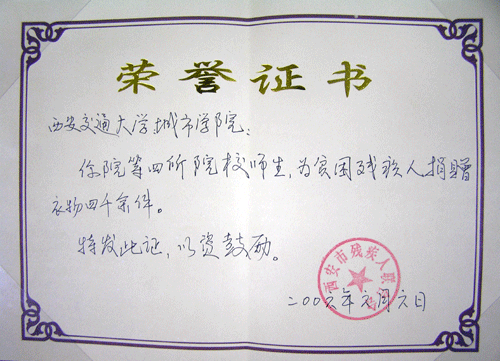 荣誉证书
西安交通大学城市学院：
你院等四所院校师生，为贫困残疾人捐赠
衣物四千余件。
特发此证，以资鼓励。
西安市残疾人联合会
二〇〇六年元月六日